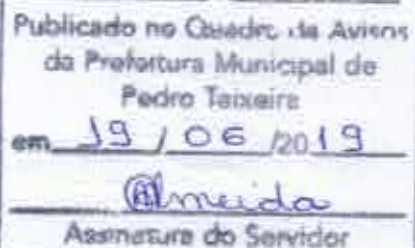 Publicado no Quadro de Avisos
da Prefeitura Municipal de
Pedro Teixeira
em 19 / 06 /2019
Almeida
Assinatura do Servidor